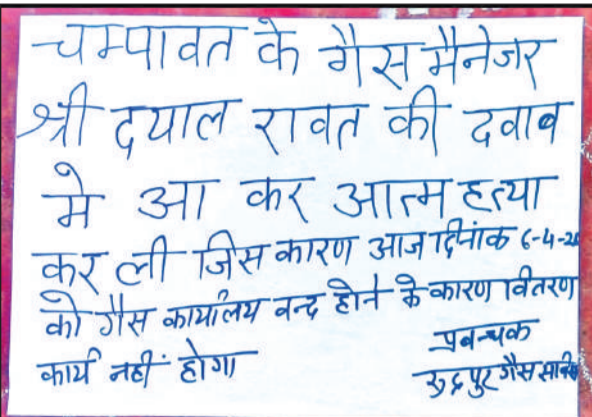 चम्पावत के गैस मैनेजर
श्री दयाल रावत की दवाब
मे आ कर आत्म हत्या
कर ली जिस कारण आज दिनांक 6-4-2
को गैस कार्यालय वन्द होने के कारण वितरण
कार्य नहीं होगा
प्रबन्धक
रुद्रपुर गैस